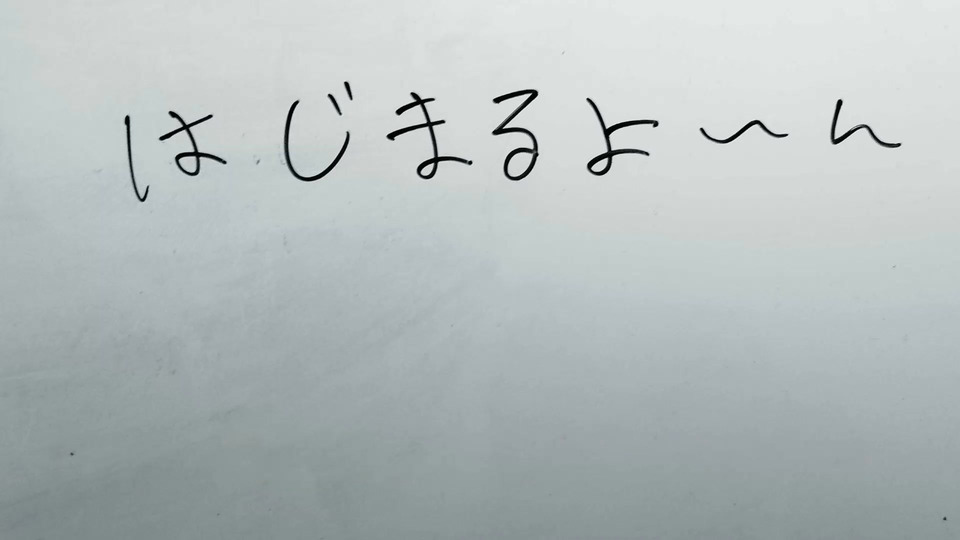 はじまるよ〜ん